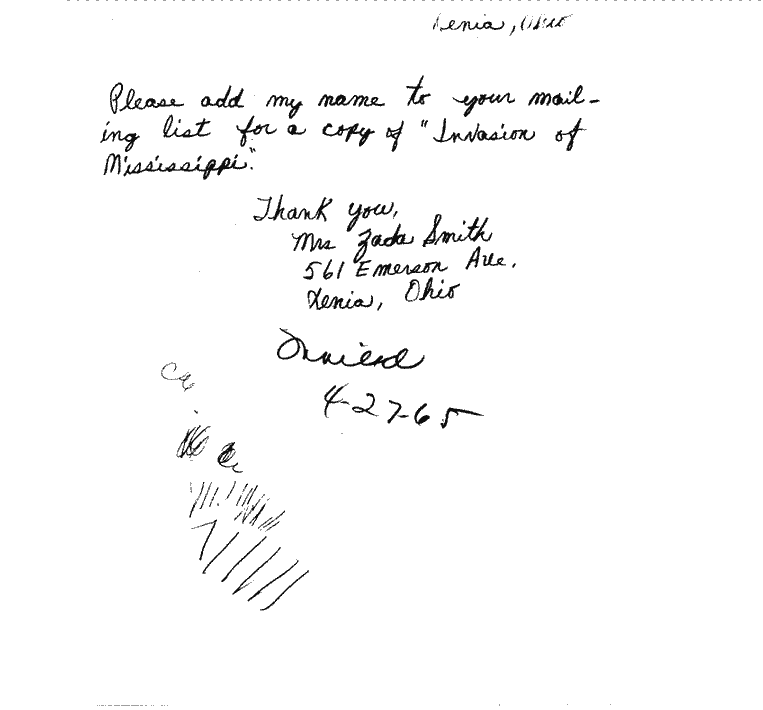 Xenia, Ohio
Please add my name to your mail-
ing list for a copy of "Invasion of
Mississippi."
Thank you,
Mrs Zada Smith
561 Emerson Ave.
Xenia, Ohio
4-27-65